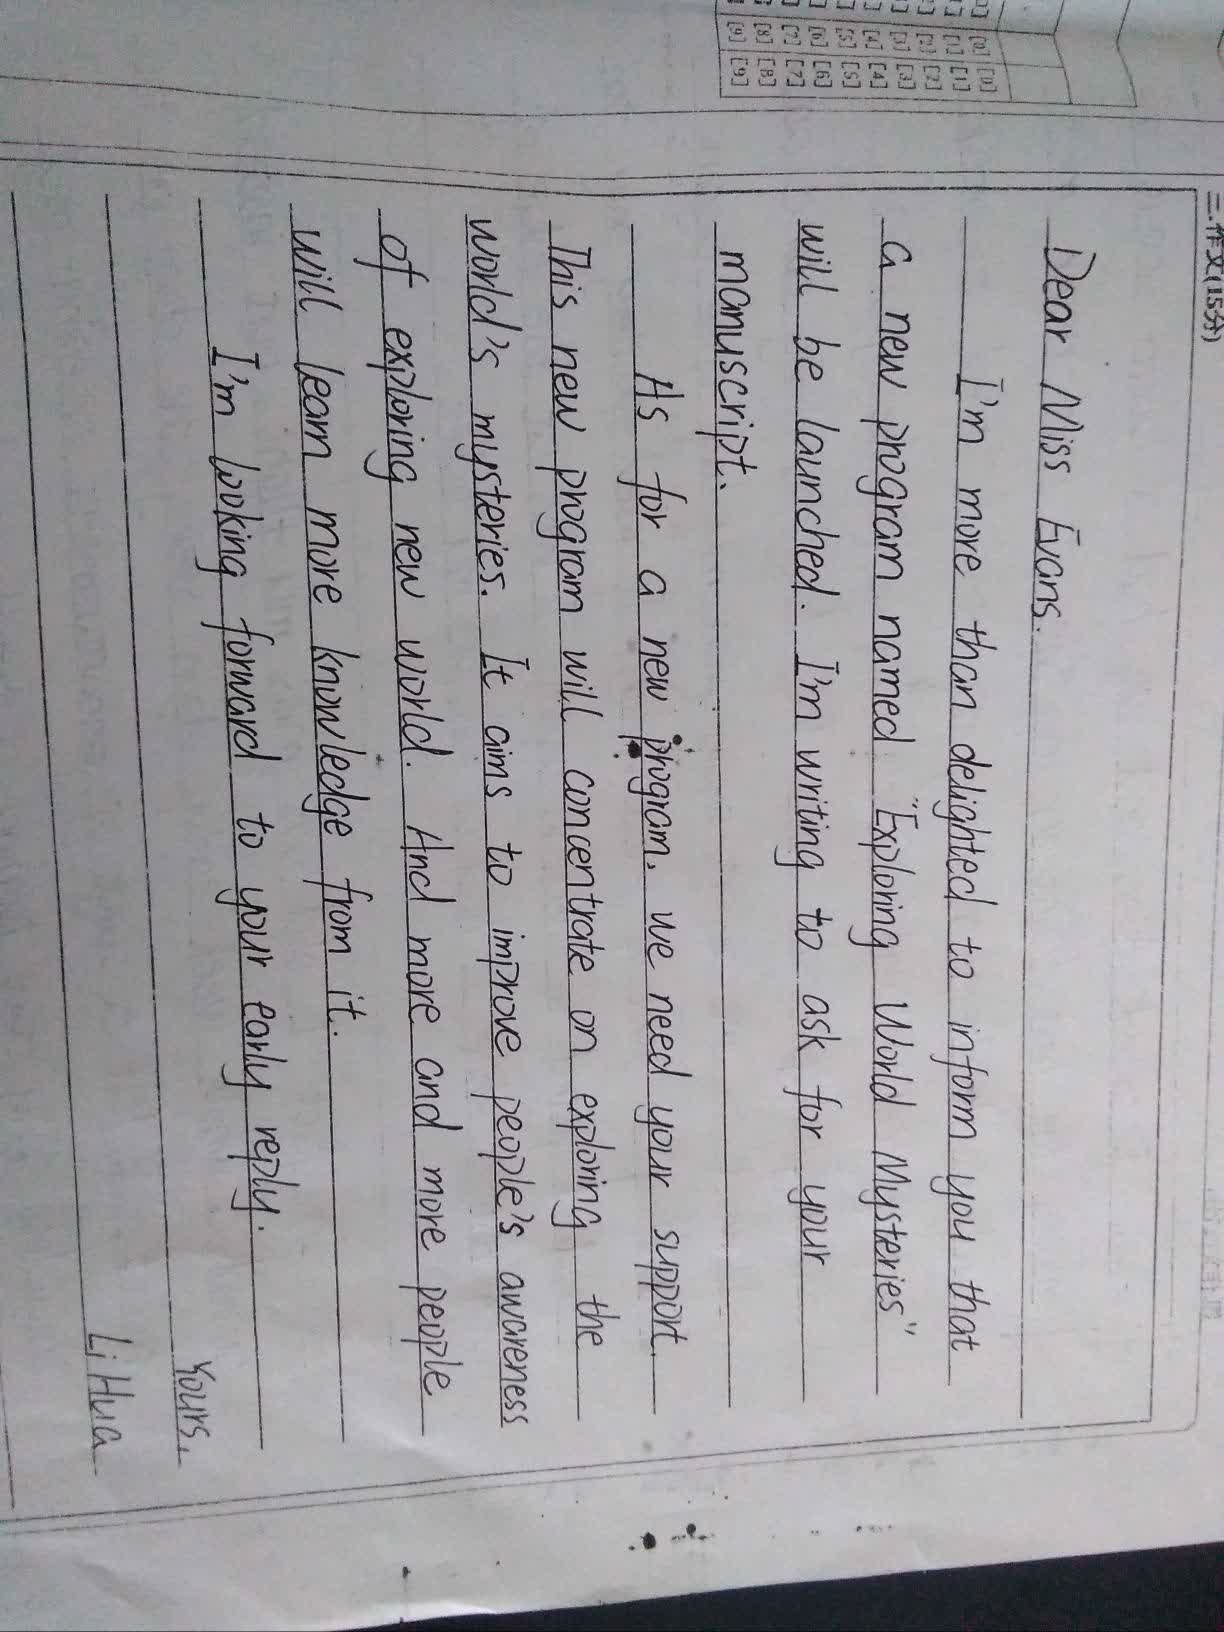 [0] [1] [2] [3] [4] [5] [6] [7] [8] [9]
[0] [1] [2] [3] [4] [5] [6] [7] [8] [9]
三.作文(15分)
Dear Miss Evans.
I'm more than delighted to inform you that
a new program named "Exploring World Mysteries"
will be launched. I'm writing to ask for your
manuscript.
As for a new program, we need your support.
This new program will concentrate on exploring the
world's mysteries. It aims to improve people's awareness
of exploring new world. And more and more people
will learn more knowledge from it.
I'm looking forward to your early reply.
Yours,
Li Hua